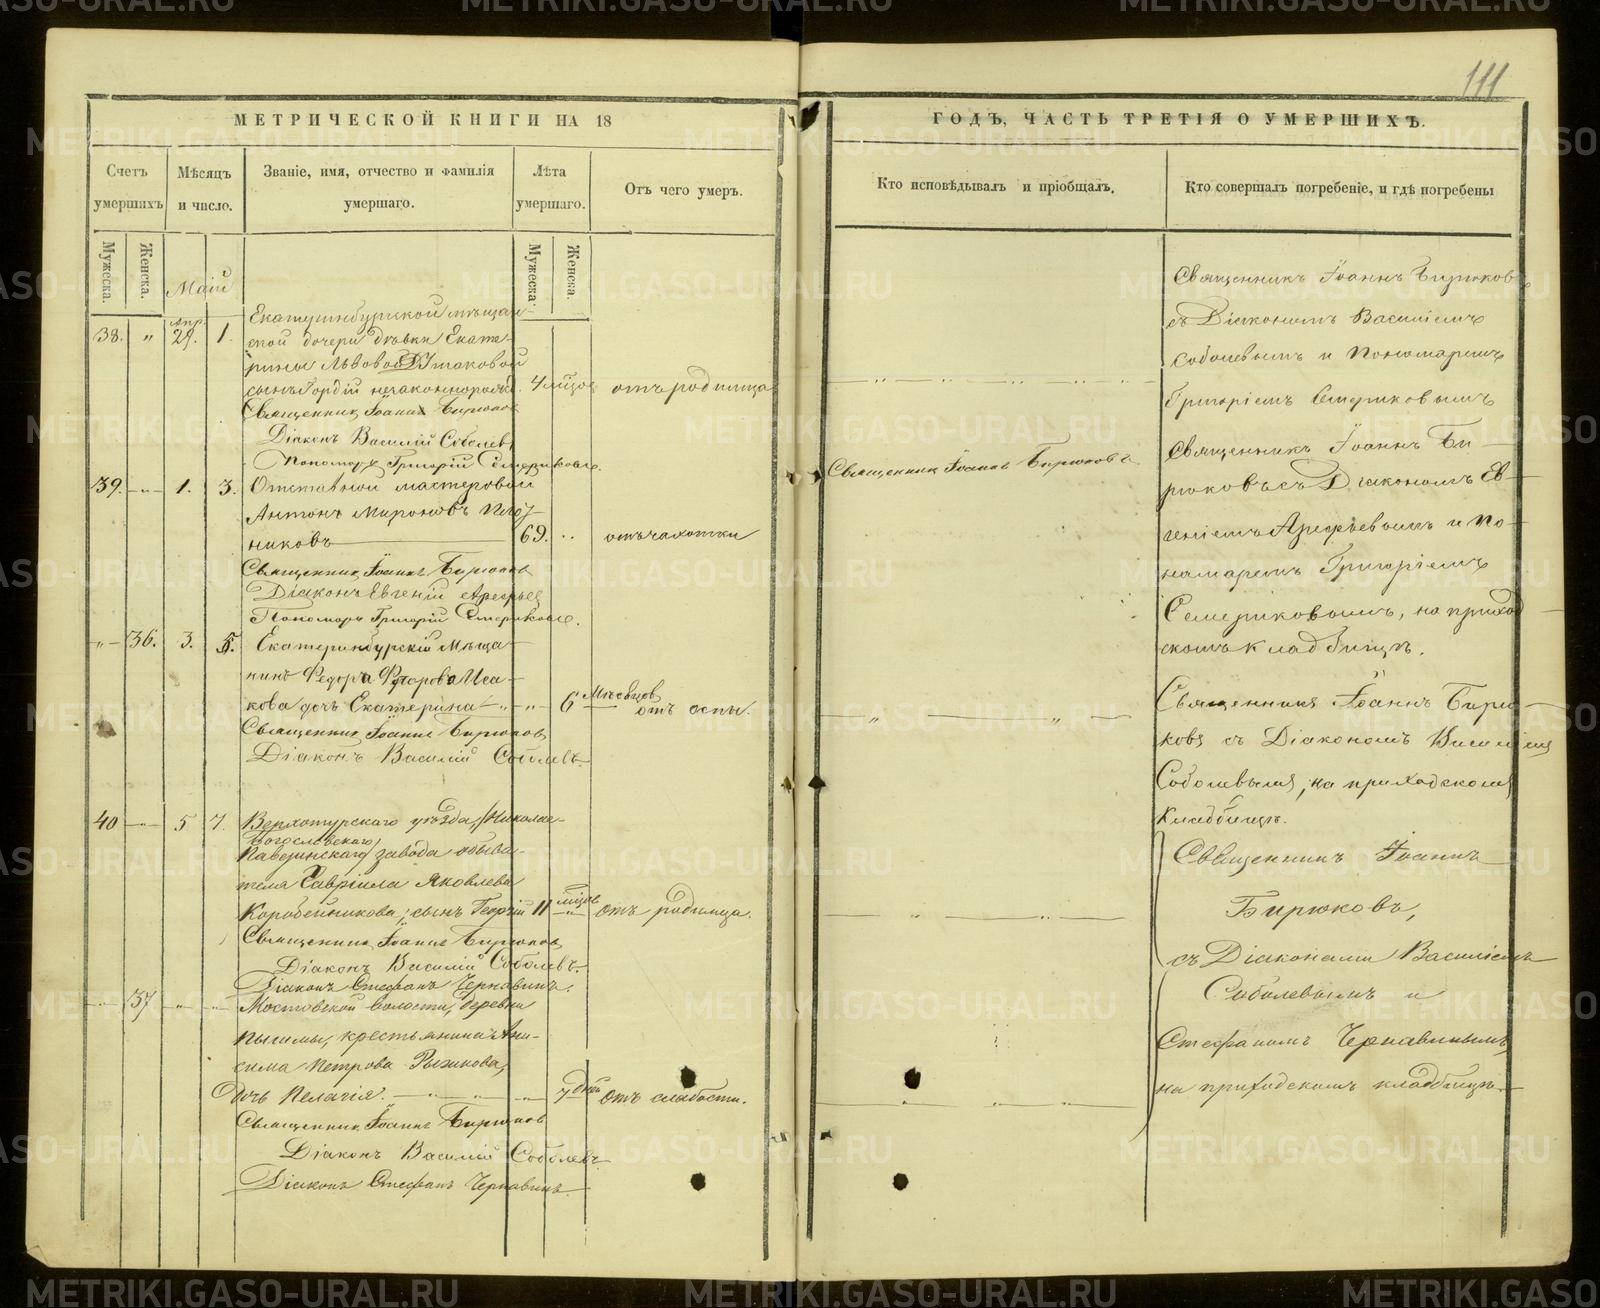 111
МЕТРИЧЕСКОЙ КНИГИ НА 18
ГОДЪ, ЧАСТЬ ТРЕТІЯ О УМЕРШИХЪ.
Счетъ умершихъ
Мѣсяцъ и число.
Званіе, имя, отчество и фамилія умершаго.
Лѣта умершаго.
Отъ чего умеръ.
Кто исповѣдывалъ и пріобщалъ.
Кто совершалъ погребеніе, и гдѣ погребены
Мужеска.
Женска.
Мужеска.
Женска.
Маій
Апр.
38. „ 29. 1.
Екатеринбургской мѣщан-
ской дочери дѣвки Екате-
рины Львовой
сынъ Гордій незаконнорожд. 4 мѣсяц. отъ родимца
Священникъ Іоаннъ Бирюковъ
Діаконъ Василій Соболевъ
Пономарь Григорій Семериковъ.
39. „ 1. 3. Отставной мастеровой
Антонъ Мироновъ
никовъ 69. отъ чахотки
Священникъ Іоаннъ Бирюковъ
Діаконъ Евгеній Арефьевъ
Пономарь Григорій Семериковъ.
„ 36. 3. 5. Екатеринбурскій Мѣща-
нинъ Федора Федорова Иса-
кова дочь Екатерина 6 Мѣсяцов отъ оспы.
Священникъ Іоаннъ Бирюковъ
Діаконъ Василій Соболевъ.
40 „ 5 7. Верхотурского уѣзда, /Николае-
Богословского/
Павдинскаго завода обыва-
теля Гавріила Яковлева
Коробейникова, сынъ Георгій 11 мѣсяц. отъ родимца.
Священникъ Іоаннъ Бирюковъ
Діаконъ Василій Соболевъ.
Діаконъ Стефанъ Чернавинъ.
„ 37 „ „ Мостовской волости, деревни
Пышмы, крестьянина Ани-
сима Петрова Рыжкова,
дочь Пелагія. 7 дней отъ слабости.
Священникъ Іоаннъ Бирюковъ
Діаконъ Василій Соболевъ
Діаконъ Стефанъ Чернавинъ.
Священникъ Іоаннъ Бирюковъ
Священникъ Іоаннъ Бирюковъ
съ Діакономъ Василіемъ
Соболевымъ и Пономаремъ
Григоріемъ Семериковымъ
Священникъ Іоаннъ Би-
рюковъ съ Діакономъ Ев-
геніемъ Арефьевымъ и По-
номаремъ Григоріемъ
Семериковымъ, на приход-
скомъ кладбищѣ.
Священникъ Іоаннъ Бирю-
ковъ съ Діакономъ Василіемъ
Соболевымъ, на приходскомъ
кладбищѣ.
Священникъ Іоаннъ
Бирюковъ,
съ Діаконами Василіемъ
Соболевымъ и
Стефаномъ Чернавинымъ,
на приходскомъ кладбищѣ.
METRIKI.GASO-URAL.RU